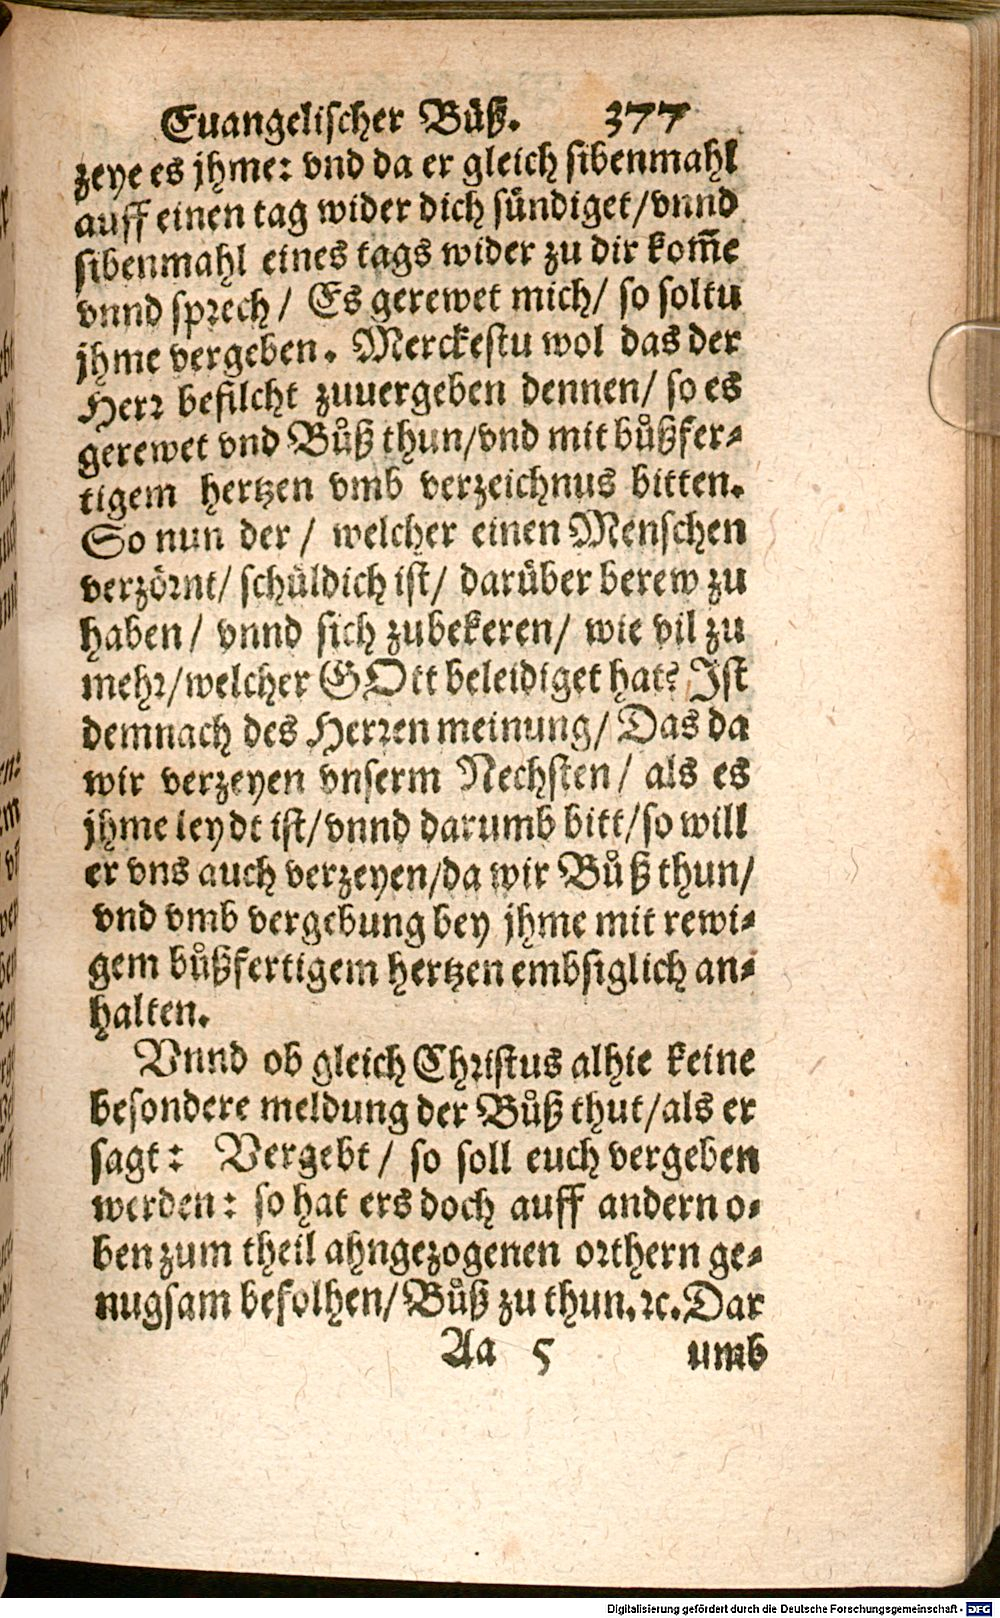 Euangelischer Büß. 377
zeye es jhme: vnd da er gleich sibenmahl
auff einen tag wider dich sündiget/vnnd
sibenmahl eines tags wider zu dir kom̃e
vnnd sprech/ Es gerewet mich/ so soltu
jhme vergeben. Merckestu wol das der
Herr befilcht zuuergeben dennen/ so es
gerewet vnd Bůß thun/vnd mit bůßfer⸗
tigem hertzen vmb verzeichnus bitten.
So nun der/ welcher einen Menschen
verzörnt/ schüldich ist/ darüber berew zu
haben/ vnnd sich zubekeren/ wie vil zu
mehr/welcher GOtt beleidiget hat? Ist
demnach des Herren meinung/ Das da
wir verzeyen vnserm Nechsten/ als es
jhme leydt ist/vnnd darumb bitt/so will
er vns auch verzeyen/da wir Bůß thun/
vnd vmb vergebung bey jhme mit rewi⸗
gem bůßfertigem hertzen embsiglich an⸗
halten.
Vnnd ob gleich Christus alhie keine
besondere meldung der Bůß thut/als er
sagt: Vergebt/ so soll euch vergeben
werden: so hat ers doch auff andern o⸗
ben zum theil ahngezogenen orthern ge⸗
nugsam befolhen/Bůß zu thun.ꝛc.Dar
Aa 5 umb
Digitalisierung gefördert durch die Deutsche Forschungsgemeinschaft - DFG